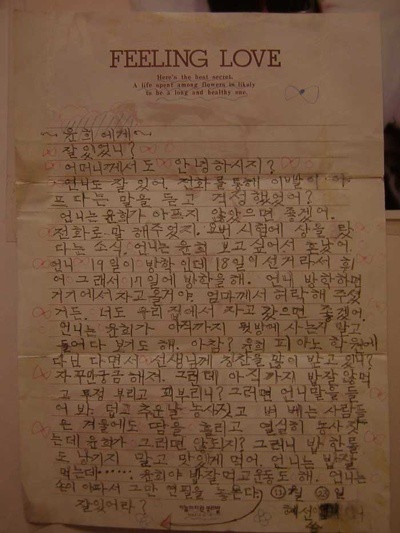 FEELING LOVE
Here's the best secret.
A life spent among flowers is likely
to be a long and healthy one.
~윤희 에게~
잘있었니?
어머니께서도 안녕하시지?
언니도 잘 있어. 전화를 통해 이빨이 아
프다는 말을 듣고 걱정했었어?
언니는 윤희가 아프지 않았으면 좋겠어.
전화로 말 해주었지. 요번 시험에 상을 탔
다는 소식. 언니는 윤희 보고 싶어서
언니 19일이 방학 인데 18일이 선거라서 쉬
어 그래서 17일에 방학을 해. 언니 방학하면
거기에서 자고 올거야. 엄마께서 허락해 주셨
거든. 너도 우리 집에서 자고 갔으면 좋겠어.
언니는 윤희가 아직까지 사는지 알고
들어다 보기도 해. 아참? 윤희 피아노 학원에
다닌 다면서 선생님께 칭찬을 많이 받고 있니?
자꾸만 궁금해져. 그런데 아직까지 밥잘 않먹
고 투정 부리고 피부리니? 그러면 언니말을 들
어 봐. 덥고 추운날 농사짓고 벼 베는 사람들
은 겨울에도 땀을 흘리고 열심히 농사 짓
는데 윤희가 그러면 않되지? 그러니 밥 한톨
도 남기지 말고 맛있게 먹어. 언니는 밥잘
먹는데······ 윤희야 밥잘먹고 운동도 해. 언니는
손이 아파서 그만 연필을 놓는다. 11월
잘있어라?